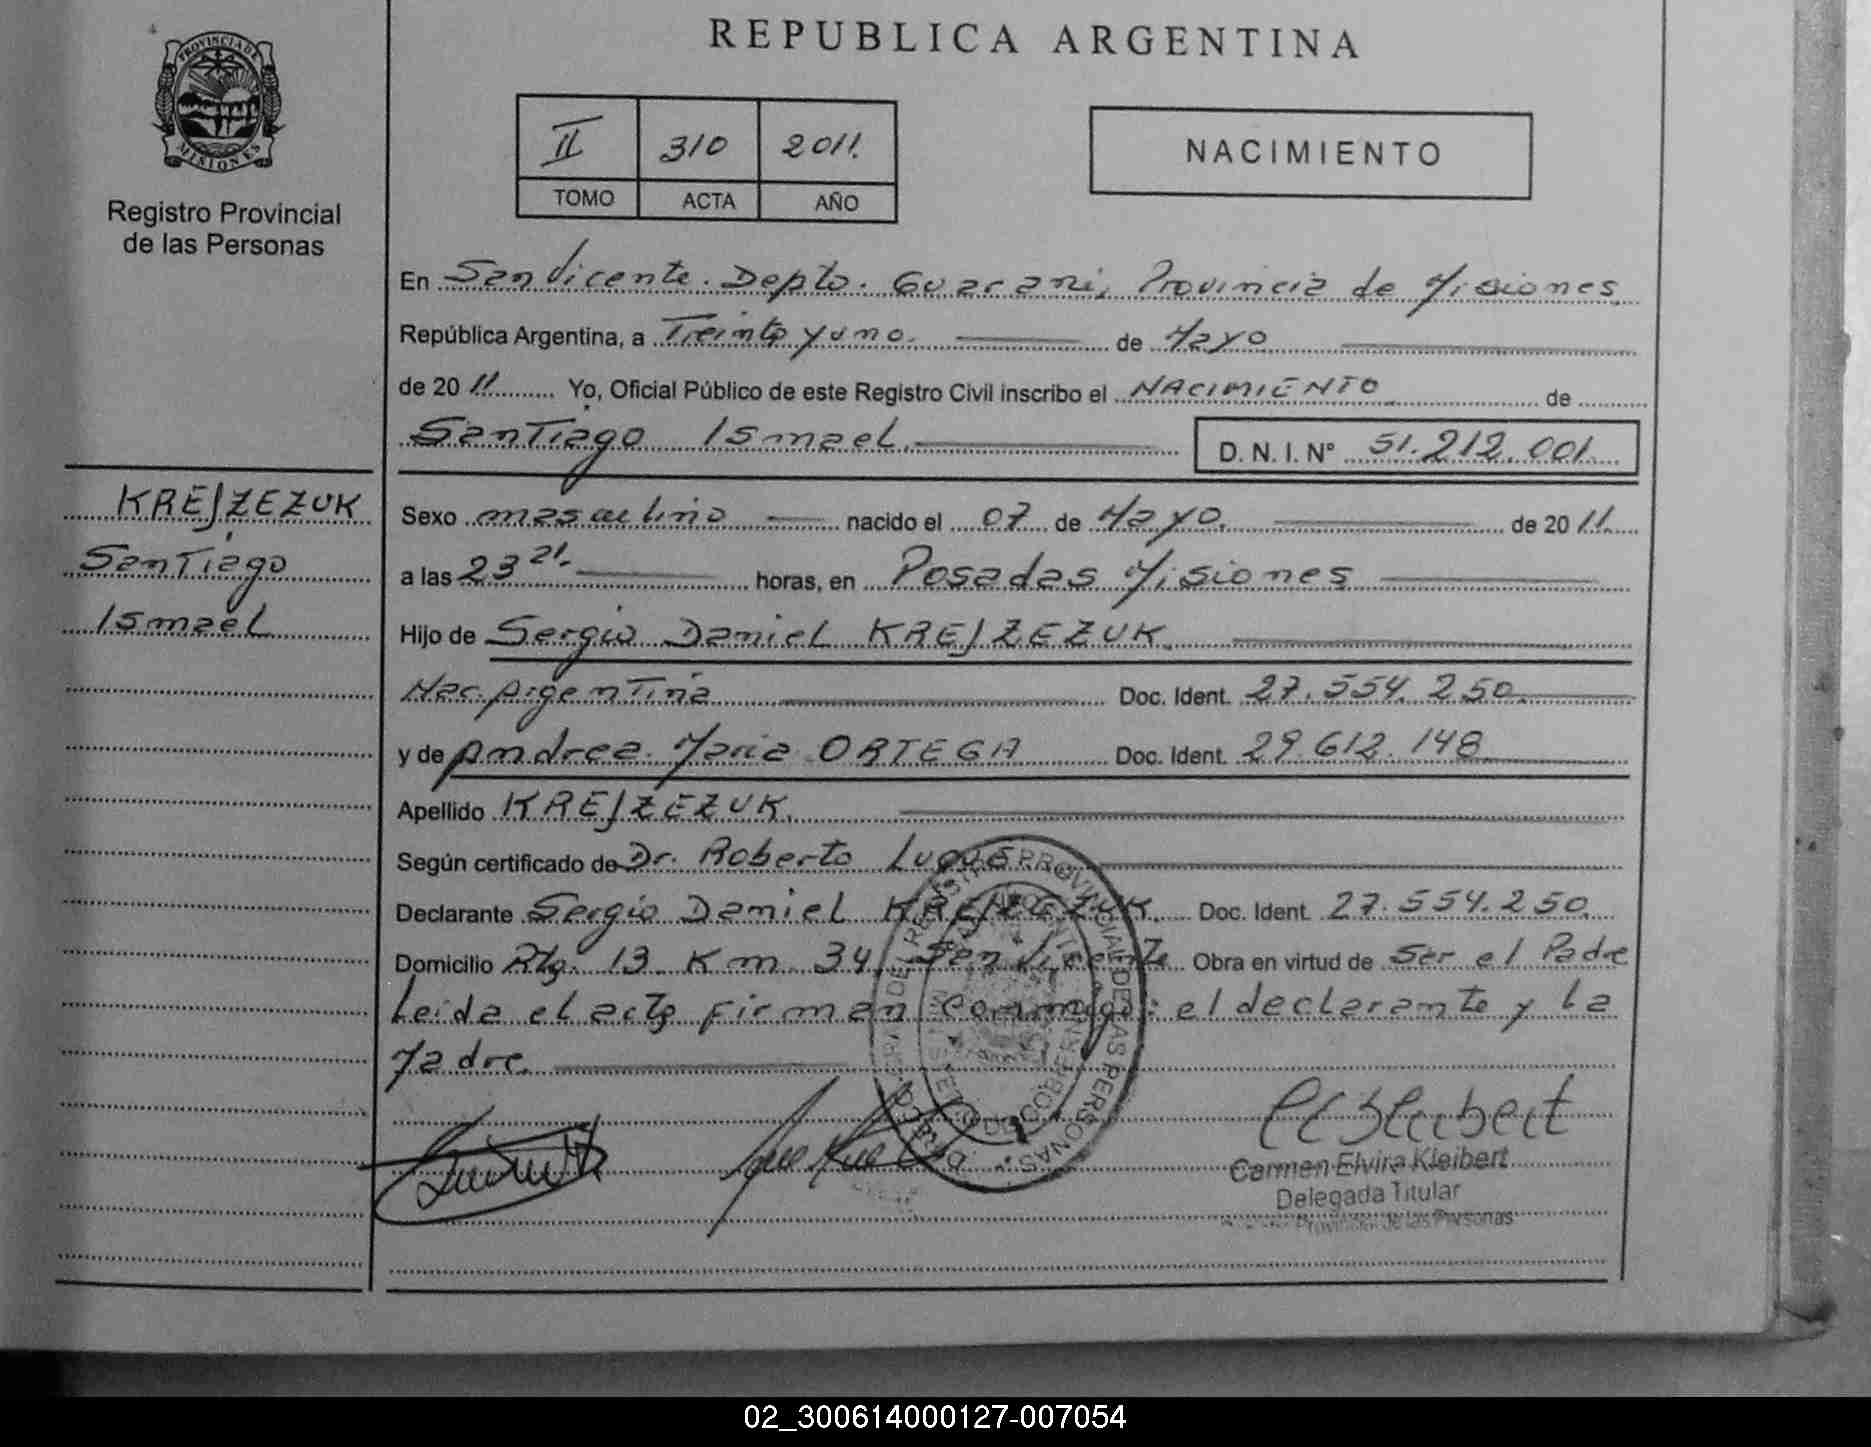 REPUBLICA ARGENTINA
PROVINCIA DE
MISIONES
Registro Provincial
de las Personas
II 310 2011.
TOMO ACTA AÑO
NACIMIENTO
En San Vicente. Depto. Guarani, Provincia de Misiones
República Argentina, a Treinta y uno. de Mayo
de 20 11 Yo, Oficial Público de este Registro Civil inscribo el NACIMIENTO de
Santiago Ismael. D. N. I. Nº 51.212.001
KREJZEZUK
Santiago
Ismael
Sexo masculino nacido el 07 de Mayo. de 20 11.
a las 23 21. horas, en Posadas Misiones
Hijo de Sergio Daniel KREJZEZUK.
Nac. Argentina Doc. Ident. 27.554.250.
y de Andrea Maria ORTEGA Doc. Ident. 29.612.148
Apellido KREJZEZUK.
Según certificado de Dr. Roberto Luque
Declarante Sergio Daniel KREJZEZUK. Doc. Ident. 27.554.250.
Domicilio Rta. 13 Km 34, San Vicente Obra en virtud de Ser el Padre
Leida el acta firman conmigo: el declarante y la
Madre.
Carmen Elvira Kleibert
Delegada Titular
Provincial de las Personas
02_300614000127-007054